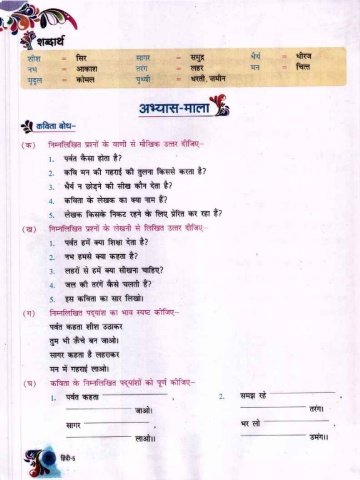 शब्दार्थ
शीश = सिर सागर = समुद्र धैर्य = धीरज
नभ = आकाश तरंग = लहर मन = चित्त
मृदुल = कोमल पृथ्वी = धरती, जमीन
अभ्यास-माला
कविता बोध–
(क) निम्नलिखित प्रश्नों के वाणी से मौखिक उत्तर दीजिए–
1. पर्वत कैसा होता है?
2. कवि मन की गहराई की तुलना किससे करता है?
3. धैर्य न छोड़ने की सीख कौन देता है?
4. कविता के लेखक का क्या नाम हैं?
5. लेखक किसके निकट रहने के लिए प्रेरित कर रहा हैं?
(ख) निम्नलिखित प्रश्नों के लेखनी से लिखित उत्तर दीजिए–
1. पर्वत हमें क्या शिक्षा देता है?
2. नभ हमसे क्या कहता है?
3. लहरों से हमें क्या सीखना चाहिए?
4. जल की तरंगें कैसे चलती हैं?
5. इस कविता का सार लिखो।
(ग) निम्नलिखित पद्यांश का भाव स्पष्ट कीजिए–
पर्वत कहता शीश उठाकर
तुम भी ऊँचे बन जाओ।
सागर कहता है लहराकर
मन में गहराई लाओ।
(घ) कविता के निम्नलिखित पद्यांशों को पूर्ण कीजिए–
1. पर्वत कहता 2. समझ रहे
जाओ। तरंग।
सागर भर लो
लाओ।। उमंग।।
हिंदी-5